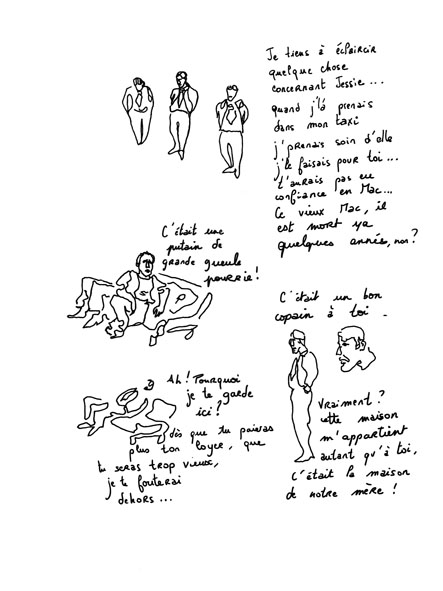 Je tiens à éclaircir
quelque chose
concernant Jessie...
quand j'la prenais
dans mon taxi
j'prenais soin d'elle
j'le faisais pour toi...
t'aurais pas eu
confiance en Mac...
Ce vieux Mac, il
est mort ya
quelques annés, non?
C'était une
putain de
grande gueule
pourrie!
C'était un bon
copain à toi -
Ah! Pourquoi
je te garde
ici?
dès que tu paieras
plus ton loyer, que
tu seras trop vieux,
je te fouterai
dehors...
Vraiment?
cette maison
m'appartient
autant qu'à toi,
C'était la maison
de notre mère!